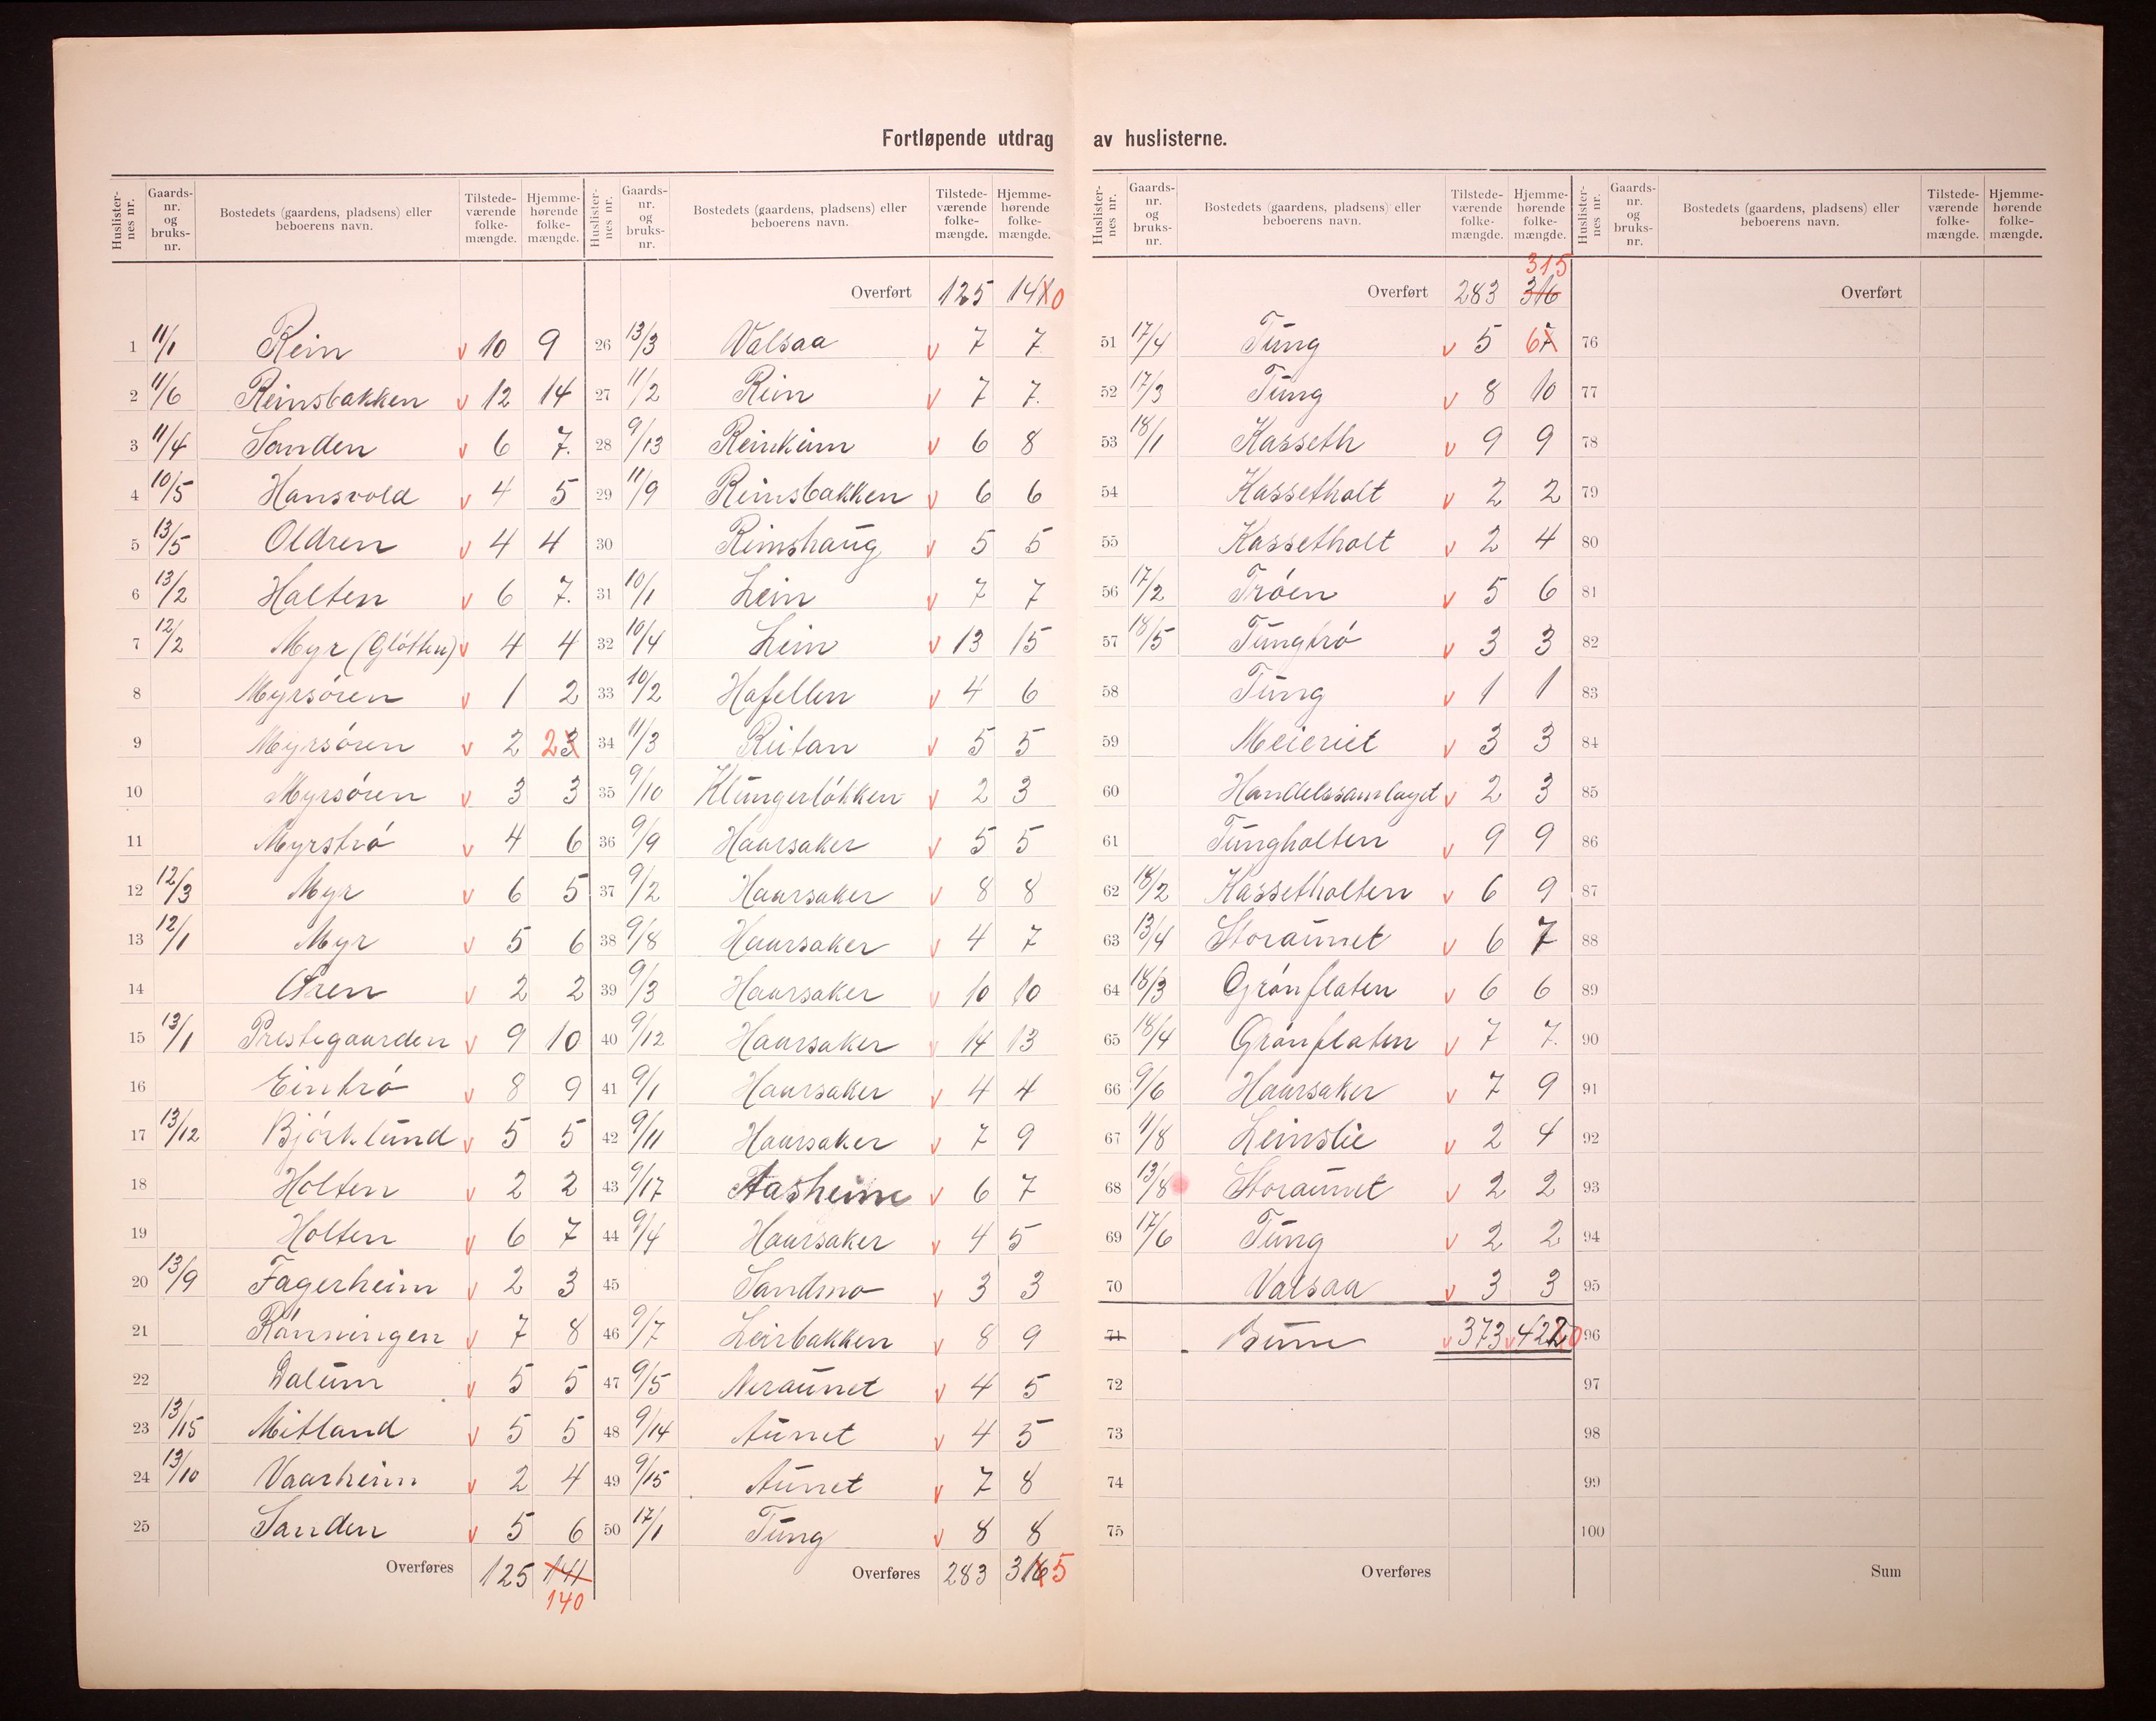 Fortløpende utdrag av huslisterne.
Huslister-nes nr. Gaards-nr. og bruks-nr. Bostedets (gaardens, pladsens) eller beboerens navn. Tilstede-værende folke-mængde. Hjemme-hørende folke-mængde.
1 11/1 Rein v 10 9
2 11/6 Reinsbakken v 12 14
3 11/4 Sanden v 6 7.
4 10/5 Hansvold v 4 5
5 13/5 Oldren v 4 4
6 13/2 Halten v 6 7.
7 12/2 Myr (Glötten) v 4 4
8 Myrsören v 1 2
9 Myrsören v 2 2 3
10 Myrsören v 3 3
11 Myrströ v 4 6
12 12/3 Myr v 6 5
13 12/1 Myr v 5 6
14 Ören v 2 2
15 13/1 Prestegaarden v 9 10
16 Eintrö v 8 9
17 13/12 Björklund v 5 5
18 Holten v 2 2
19 Holten v 6 7
20 13/9 Fagerheim v 2 3
21 Rönningen v 7 8
22 Dalum v 5 5
23 13/15 Mitland v 5 5
24 13/10 Vaarheim v 2 4
25 Sanden v 5 6
Overføres 125 141
140
Huslister-nes nr. Gaards-nr. og bruks-nr. Bostedets (gaardens, pladsens) eller beboerens navn. Tilstede-værende folke-mængde. Hjemme-hørende folke-mængde.
Overført 125 141 0
26 13/3 Valsaa v 7 7
27 11/2 Rein v 7 7.
28 9/13 Reinheim v 6 8
29 11/9 Reinsbakken v 6 6
30 Reinshaug v 5 5
31 10/1 Lein v 7 7
32 10/4 Lein v 13 15
33 10/2 Hafellen v 4 6
34 11/3 Reitan v 5 5
35 9/10 Klungerlökken v 2 3
36 9/9 Haarsaker v 5 5
37 9/2 Haarsaker v 8 8
38 9/8 Haarsaker v 4 7
39 9/3 Haarsaker v 10 10
40 9/12 Haarsaker v 14 13
41 9/1 Haarsaker v 4 4
42 9/11 Haarsaker v 7 9
43 9/17 Aasheim v 6 7
44 9/4 Haarsaker v 4 5
45 Sandmo v 3 3
46 9/7 Leirbakken v 8 9
47 9/5 Neraunet v 4 5
48 9/14 Aunet v 4 5
49 9/15 Aunet v 7 8
50 17/1 Tung v 8 8
Overføres 283 316 5
Huslister-nes nr. Gaards-nr. og bruks-nr. Bostedets (gaardens, pladsens) eller beboerens navn. Tilstede-værende folke-mængde. Hjemme-hørende folke-mængde.
315
Overført 283 316
51 17/4 Tung v 5 6 7
52 17/3 Tung v 8 10
53 18/1 Kasseth v 9 9
54 Kassetholt v 2 2
55 Kassetholt v 2 4
56 17/2 Tröen v 5 6
57 18/5 Tungtrö v 3 3
58 Tung v 1 1
59 Meieriet v 3 3
60 Handelssamlaget v 2 3
61 Tungholten v 9 9
62 18/2 Kassetholten v 6 9
63 13/4 Storaunet v 6 7
64 18/3 Grönflaten v 6 6
65 18/4 Grönflaten v 7 7.
66 9/6 Haarsaker v 7 9
67 11/8 Leinslie v 2 4
68 13/8 Storaunet v 2 2
69 17/6 Tung v 2 2
70 Valsaa v 3 3
71 v 373 v 422 0
72
73
74
75
Overføres
Huslister-nes nr. Gaards-nr. og bruks-nr. Bostedets (gaardens, pladsens) eller beboerens navn. Tilstede-værende folke-mængde. Hjemme-hørende folke-mængde.
Overført
76
77
78
79
80
81
82
83
84
85
86
87
88
89
90
91
92
93
94
95
96
97
98
99
100
Sum